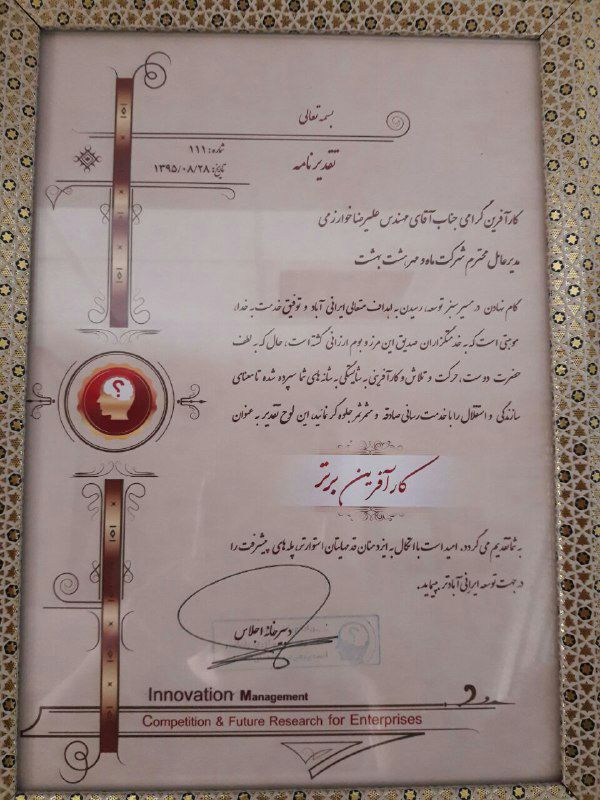 بسمه تعالی
شماره: ۱۱۱
تقدیرنامه
تاریخ: ۱۳۹۵/۰۸/۲۸
کارآفرین گرامی جناب آقای مهندس علیرضا خوارزمی
مدیرعامل محترم شرکت ماه و مهر بهشت
گام نهادن در مسیر سبز توسعه، رسیدن به اهداف متعالی ایرانی آباد و توفیق خدمت به خدا،
موهبتی است که به خدمتگزاران صدیق این مرز و بوم ارزانی گشته است، حال که به لطف
حضرت دوست، حرکت و تلاش و کارآفرینی به شایستگی به شانه های شما سپرده شده تا معنای
سازندگی و استقلال را با خدمت رسانی صادقه و مثمر ثمر جلوه گر نمائید، این لوح تقدیر به عنوان
؟
کارآفرین برتر
به شما تقدیم می گردد. امید است با اتکال به ایزد منان قدمهایتان استوارتر، پله های پیشرفت را
در جهت توسعه ایرانی آبادتر بپیماید.
دبیرخانه اجلاس
Innovation Management
Competition & Future Research for Enterprises